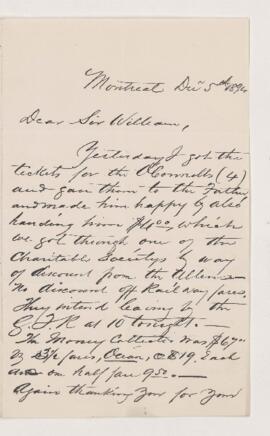 Montreal Dec 5th 1894
Dear Sir William,
Yesterday I got the
tickets for the O'Connells (4)
and gave them to the Father
and made him happy by also
handing him $4.00, which
we got through one of the
Charitable Societys by way
of discount from the
No discount off Railway fares.
They intend leaving by the
G.T.R at 10 tonight. —
The Money Collected was $67
3½ fares, Ocean, @ $19. Each
on half fare 9.50. —
Again thanking you for your